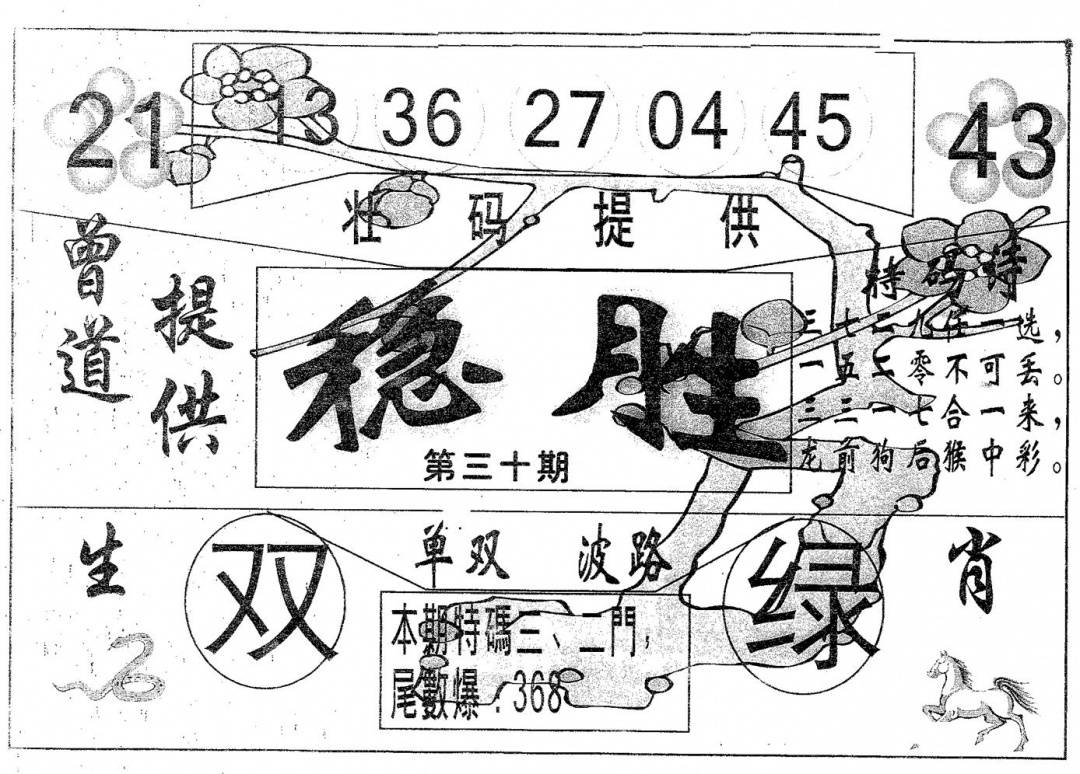 21 13 36 27 04 45 43
壮码提供
曾道
提供
稳胜
第三十期
特码诗
三七二九佳一选，
一五二零不可丢。
三二一七合一来，
龙前狗后猴中彩。
生肖
单双 波路
双 绿
本期特碼三、二門，
尾數爆：368